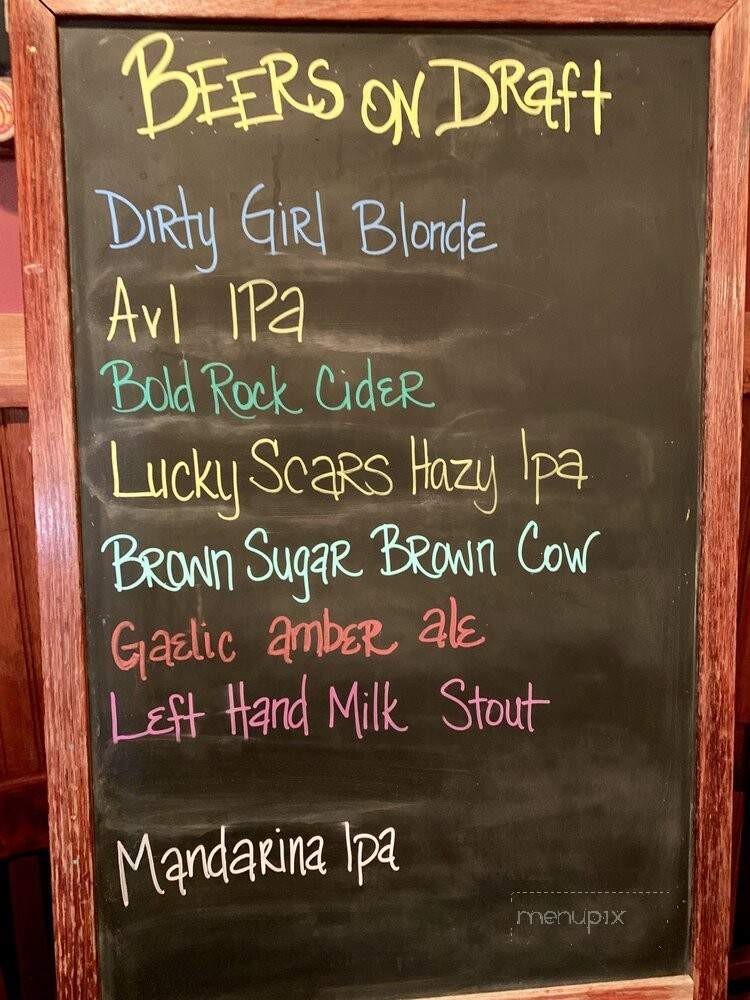 BEERS ON DRaft
DIRty GIRl Blonde
Avl IPa
Bold Rock CideR
Lucky ScaRs Hazy Ipa
BRown SugaR BRown Cow
Gaelic ambeR ale
Left Hand Milk Stout
MandaRina Ipa
menupix